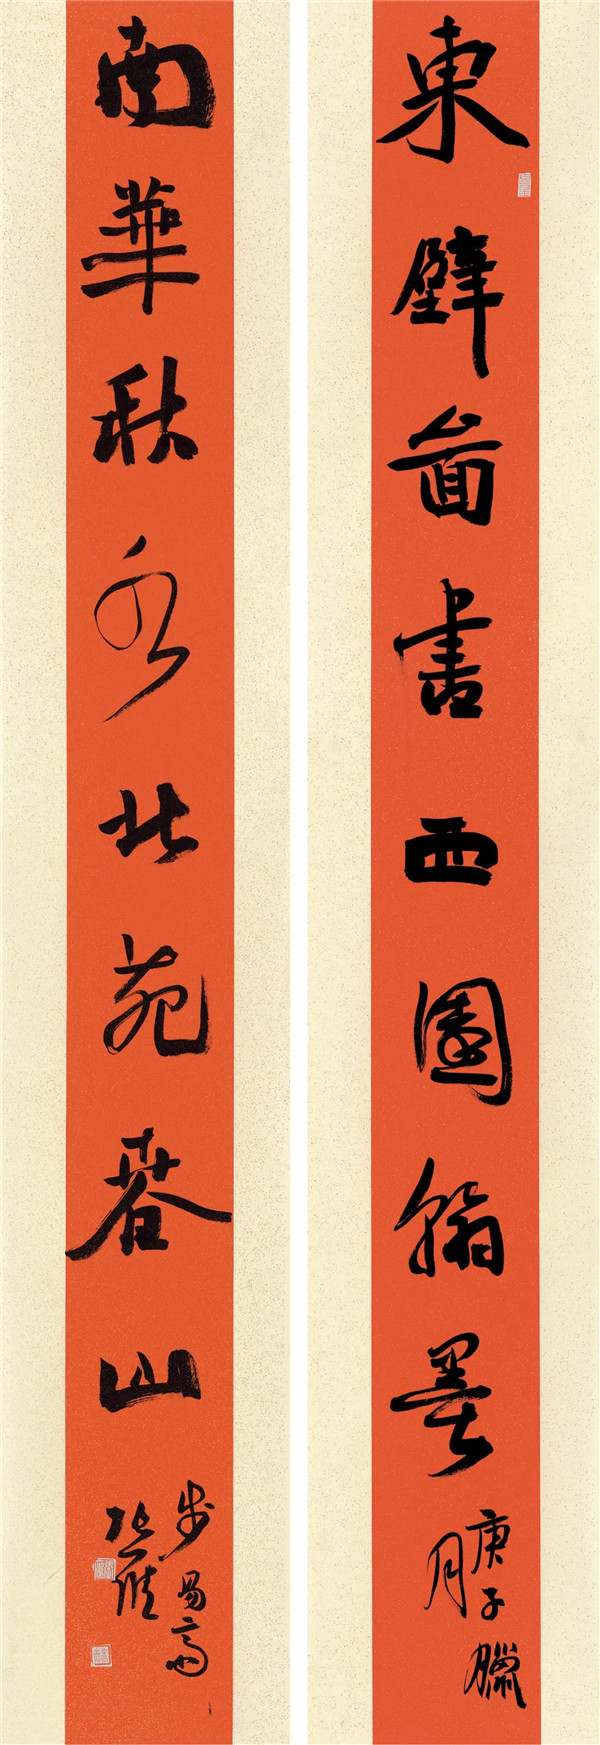 東壁圖書西園翰墨
庚子臘
月
南華秋水北苑春山
步易齋